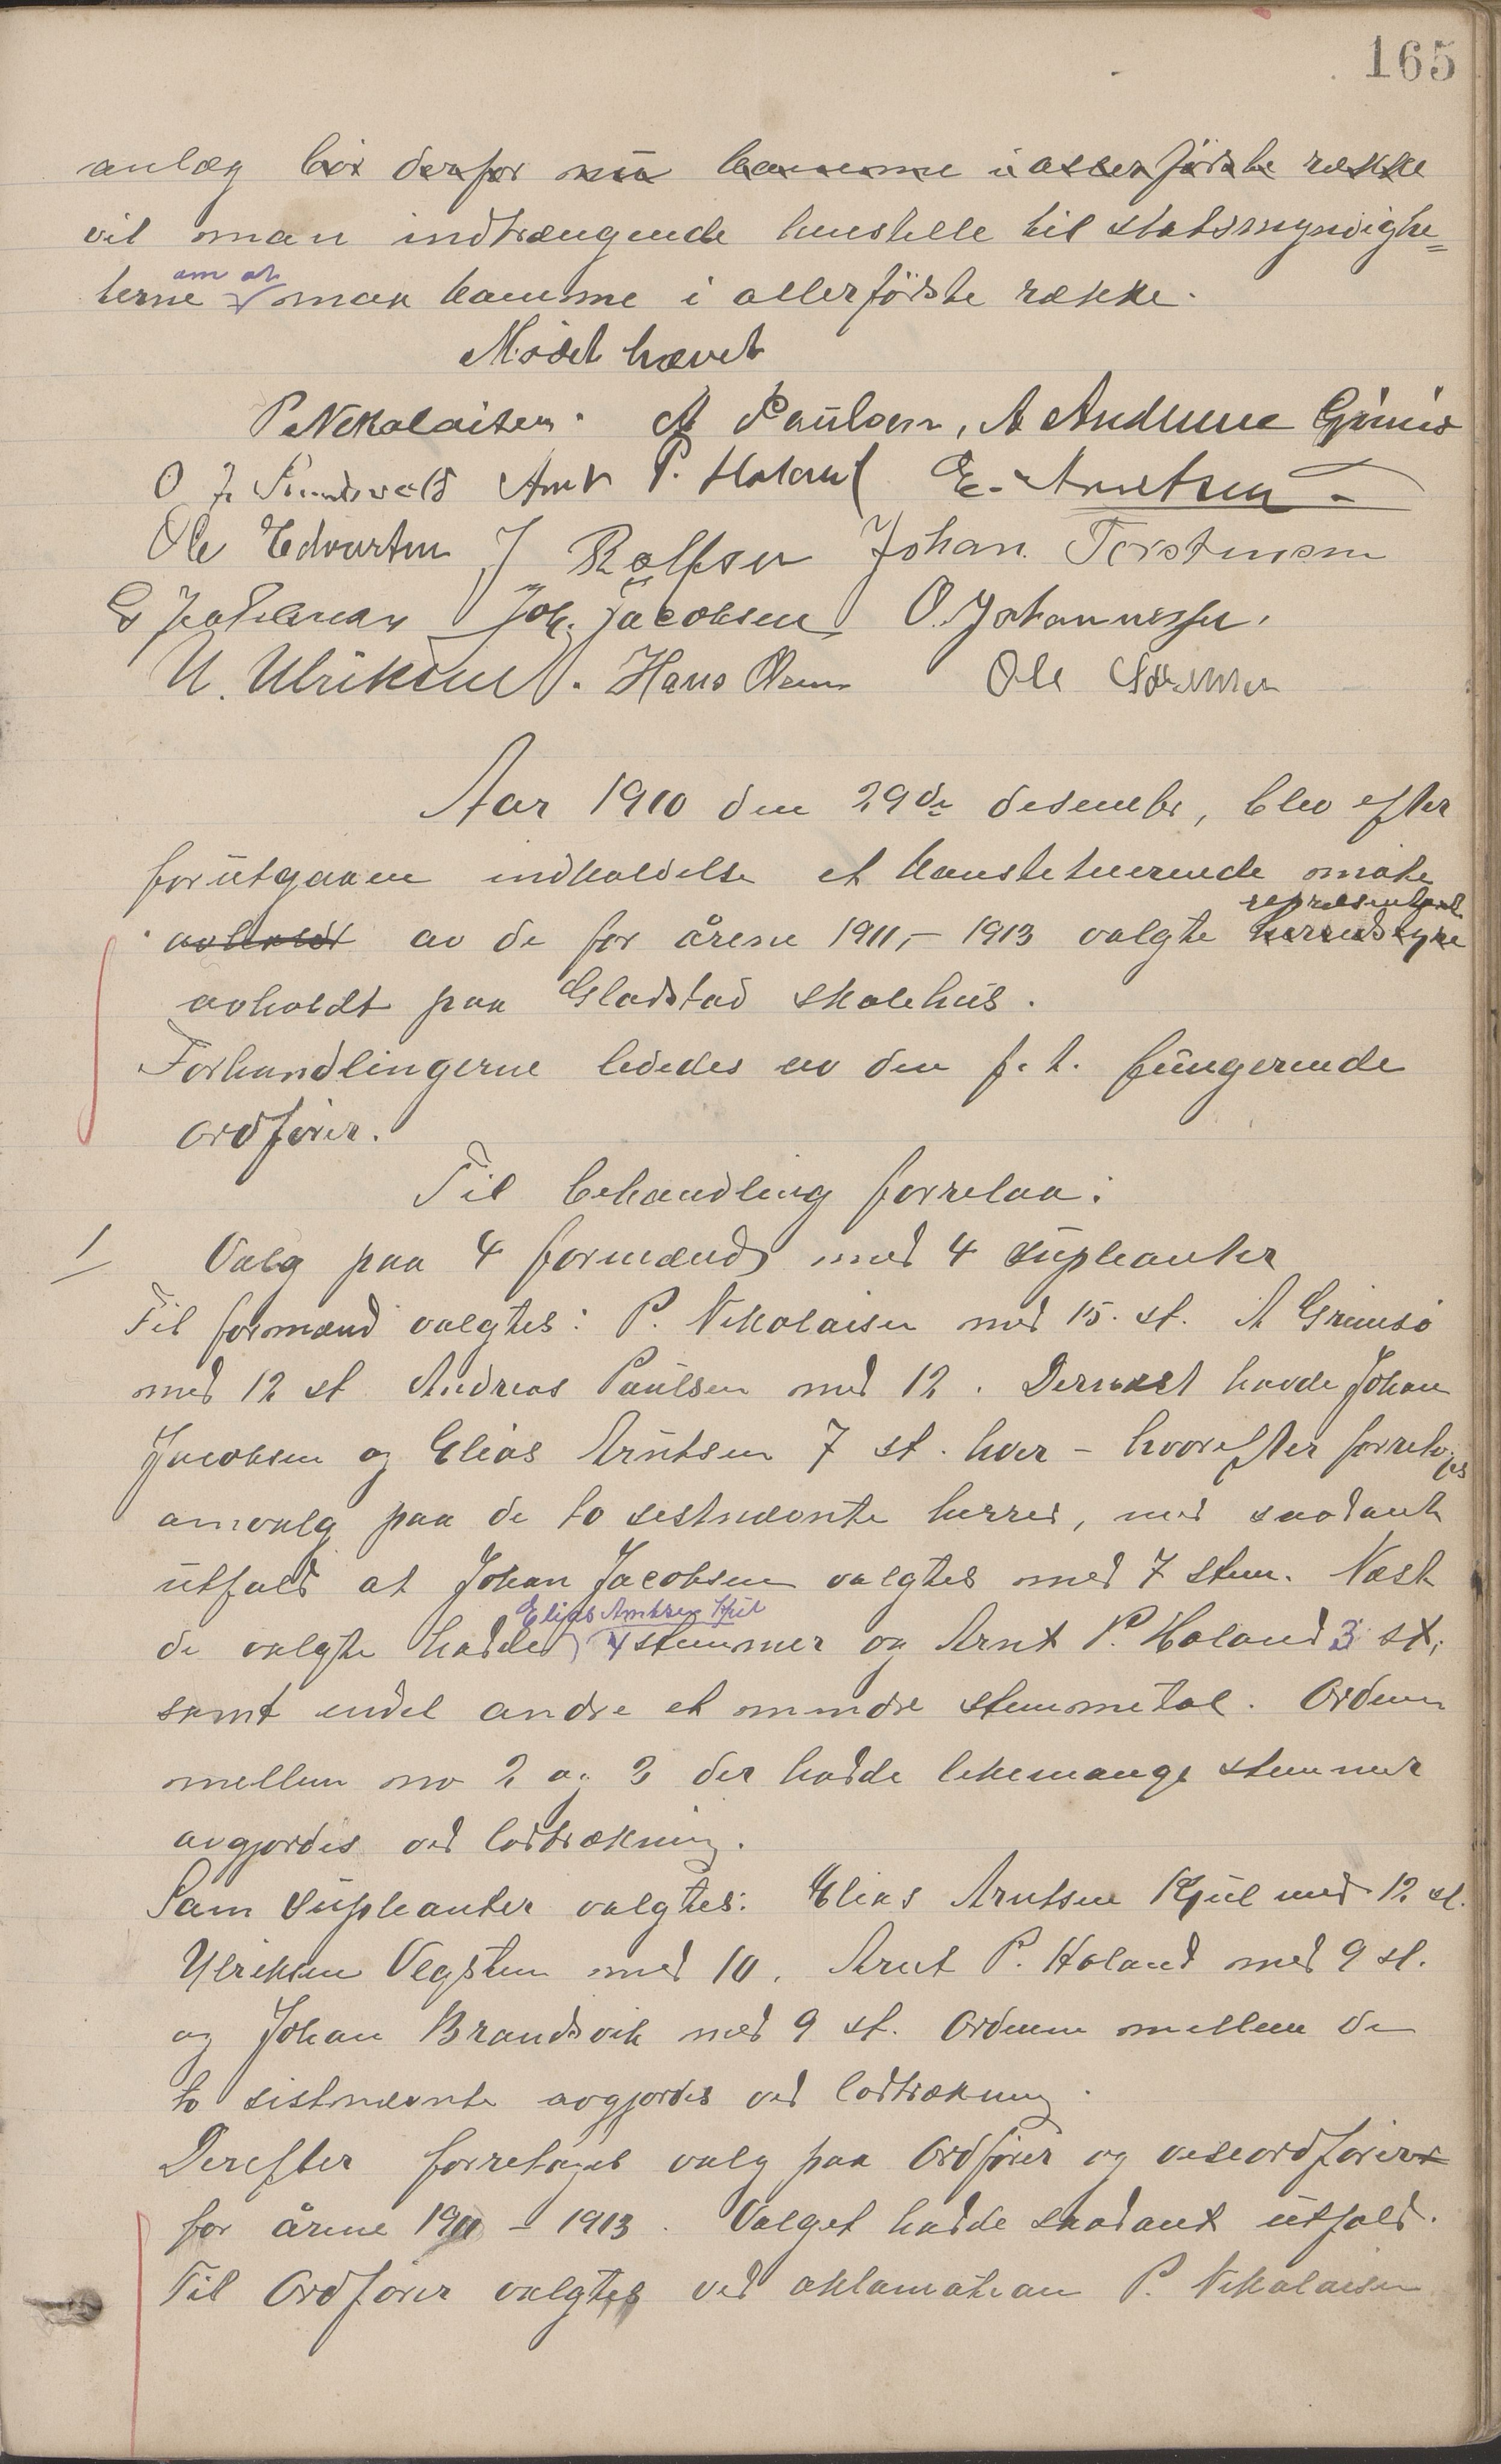 165
anlæg bör derfor nu komme i allerförste række
vil man indtrængende henstelle til statsmyndighe=
terne om at maa komme i allerförste række.
Mødet hævet
P Nikolaisen. A Paulsen, A Andersen Grimsö
O J Arnt P. Holand E. Arntsen
Ole Edvartsen J Rolfsen Johan Torstensen
Joh. Jacobsen O. Johannessen.
U. Ulriksen. Hans Olsen Ole
Aar 1910 den 29de desember, blev efter
forutgaaen indkaldelse et konstituerende möte
avholdt av de for årene 1911,- 1913 valgte herredstyre representant
avholdt paa Gladstad skolehus.
Forhandlingerne lededes av den f. t. fungerende
ordförer.
Til behandling forrelaa:
1 Valg paa 4 formænd med 4 supleanter
Til formænd valgtes: P. Nikolaisen med 15. st. A Grimsö
med 12 st Andreas Paulsen med 12. Dernæst havde Johan
Jacobsen og Elias Arntsen 7 st. hver - hvorefter forretoges
omvalg paa de to sestnævnte herrer, med saadant
utfald at Johan Jacobsen valgtes med 7 stem. Næst
de valgte hadde Elias Arntsen Kjul 4 stemmer og Arnt P. Holand 3 st,
samt endel andre et mindre stemmetal. Ordenen
mellem no 2 og 3 der hadde likemange stemmer
avgjordes ved lodtrækning.
Som supleanter valgtes: Elias Arntsen Kjul med 12 st.
Ulriksen Vegsten med 10, Arnt P. Holand med 9 st.
og Johan Brandsvik med 9 st. Ordenen mellem de
to sistnævnte avgjordes ved lodtrækning.
Derefter forretoges valg paa Ordförer og viseordförer
for årene 1911 - 1913. Valget hadde saadant utfald.
Til Ordförer valgtes ved aklamation P. Nikolaisen